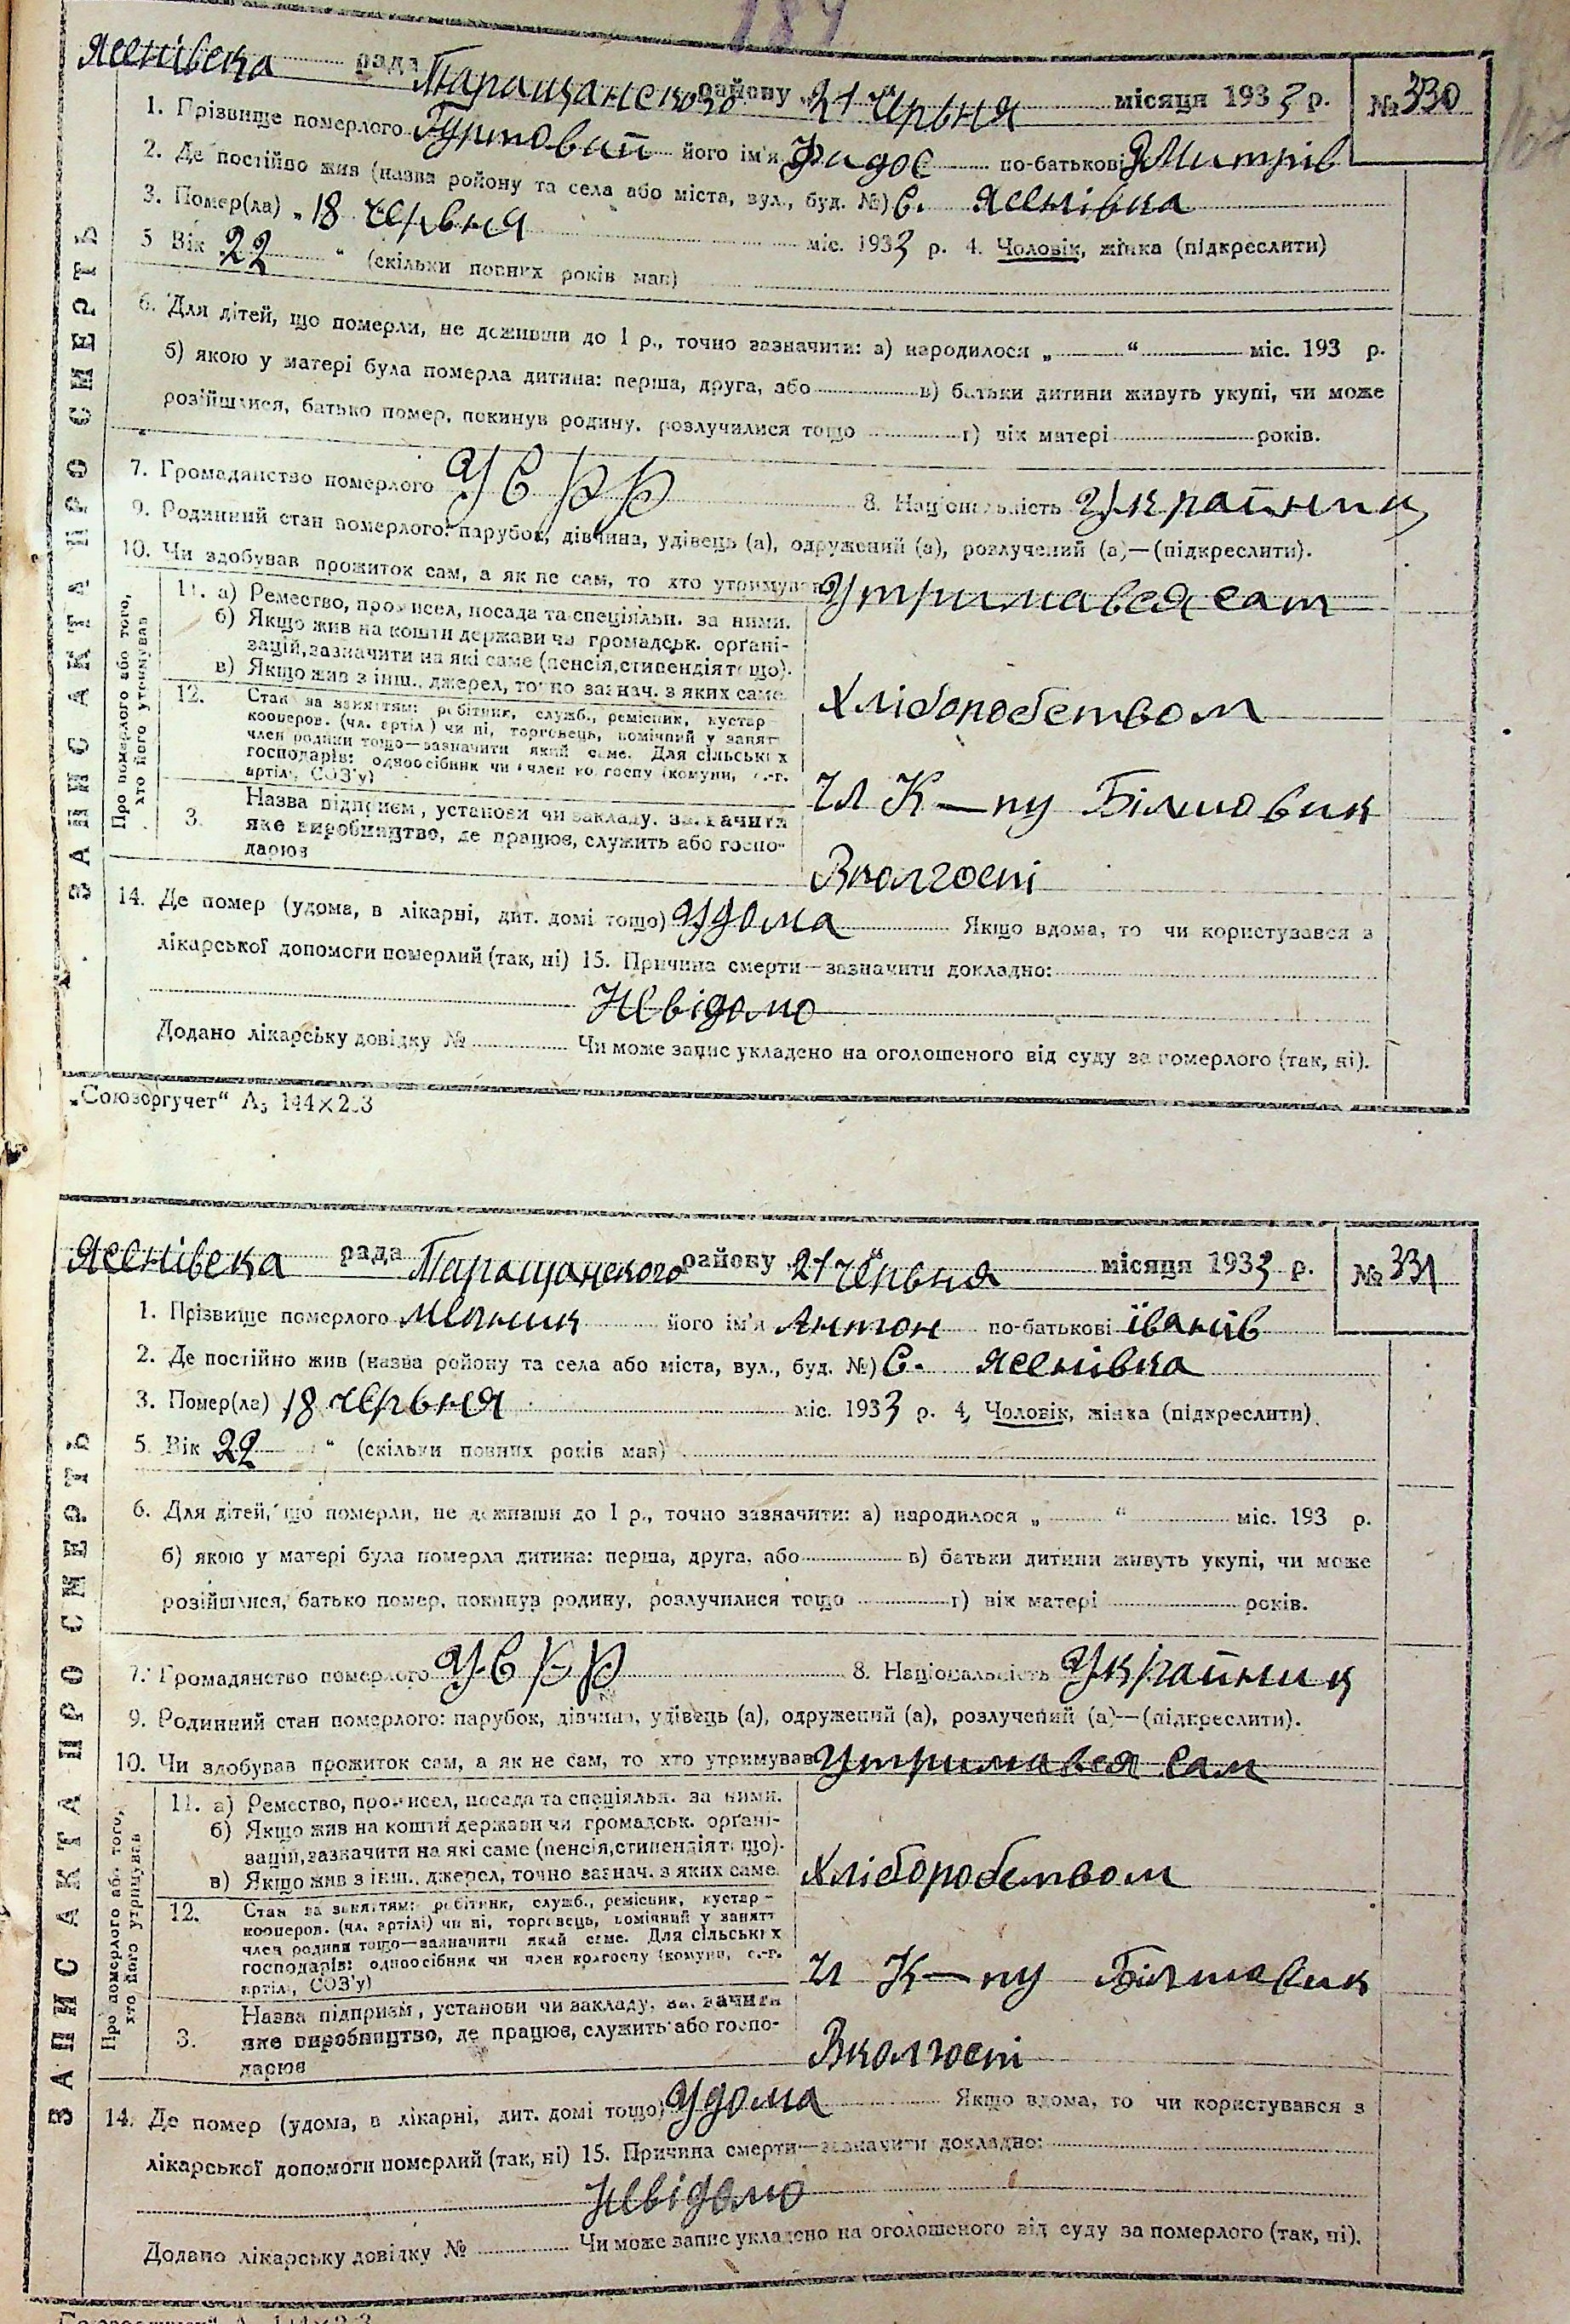 184
Ясенівська рада Таращанського району „21" Червня місяця 1933 р. № 330
1. Прізвище померлого Гуртовий його ім'я Фидос по-батькові Дмитрів
2. Де постійно жив (назва району та села або міста, вул., буд. №) С. Ясенівка
3. Помер(ла) „18 червня міс. 1933 р. 4. Чоловік, жінка (підкреслити)
5 Вік 22 " (скільки повних років мав)
6. Для дітей, що померли, не доживши до 1 р., точно зазначити: а) народилося „ " міс. 193 р.
б) якою у матері була померла дитина: перша, друга, або в) батьки дитини живуть укупі, чи може
розійшлися, батько помер, покинув родину, розлучилися тощо г) вік матері років.
7. Громадянство померлого УСРР 8. Національність Україниц
9. Родинний стан померлого: парубок, дівчина, удівець (а), одружений (а), розлучений (а)—(підкреслити).
10. Чи здобував прожиток сам, а як не сам, то хто утримував Утримався сам
11. а) Ремество, промисел, посада та спеціяльн. за ними.
б) Якщо жив на кошти держави чи громадськ. органі-
зацій, зазначити на які саме (пенсія, стипендія тощо).
в) Якщо жив з інш., джерел, точно зазнач. з яких саме.
Хліборобством
12. Стан за заняттям: робітник, служб., ремісник, кустар-
кооперов. (чл. артілі) чи ні, торговець, помічний у занятт
член родини тощо—зазначити який саме. Для сільських
господарів: одноосібник чи член колгоспу (комуни, с.-г.
артілі, СОЗ'у)
Чл К—пу Більшовик
3. Назва підприєм, установи чи закладу, зазначити
яке виробництво, де працює, служить або госпо-
дарює
Вколгоспі
14. Де помер (удома, в лікарні, дит. домі тощо) Удома Якщо вдома, то чи користувався з
лікарської допомоги померлий (так, ні) 15. Причина смерти—зазначити докладно:
Невідомо
Додано лікарську довідку № Чи може запис укладено на оголошеного від суду за померлого (так, ні).
ЗАПИС АКТА ПРО СМЕРТЬ
Про померлого або того,
хто його утримував
„Союзоргучет“ А5 144×203
Ясенівська рада Таращанського району „21" Червня місяця 1933 р. № 331
1. Прізвище померлого Мельник його ім'я Антон по-батькові Іванів
2. Де постійно жив (назва району та села або міста, вул., буд. №) С. Ясенівка
3. Помер(ла) 18 червня міс. 1933 р. 4, Чоловік, жінка (підкреслити).
5. Вік 22 " (скільки повних років мав)
6. Для дітей, що померли, не доживши до 1 р., точно зазначити: а) народилося „ " міс. 193 р.
б) якою у матері була померла дитина: перша, друга, або в) батьки дитини живуть укупі, чи може
розійшлися, батько помер, покинув родину, розлучилися тощо г) вік матері років.
7. Громадянство померлого УСРР 8. Національність Україниц
9. Родинний стан померлого: парубок, дівчина, удівець (а), одружений (а), розлучений (а)—(підкреслити).
10. Чи здобував прожиток сам, а як не сам, то хто утримував Утримався Сам
11. а) Ремество, промисел, посада та спеціяльн. за ними.
б) Якщо жив на кошти держави чи громадськ. органі-
зацій, зазначити на які саме (пенсія, стипендія тощо).
в) Якщо жив з інш., джерел, точно зазнач. з яких саме.
Хліборобством
12. Стан за заняттям: робітник, служб., ремісник, кустар-
кооперов. (чл. артілі) чи ні, торговець, помічний у занятт
член родини тощо—зазначити який саме. Для сільських
господарів: одноосібник чи член колгоспу (комуни, с.-г.
артілі, СОЗ'у)
Чл К—пу Більшовик
3. Назва підприєм, установи чи закладу, зазначити
яке виробництво, де працює, служить або госпо-
дарює
Вколгоспі
14. Де помер (удома, в лікарні, дит. домі тощо) Удома Якщо вдома, то чи користувався з
лікарської допомоги померлий (так, ні) 15. Причина смерти—зазначити докладно:
Невідомо
Додано лікарську довідку № Чи може запис укладено на оголошеного від суду за померлого (так, ні).
ЗАПИС АКТА ПРО СМЕРТЬ
Про померлого або того,
хто його утримував